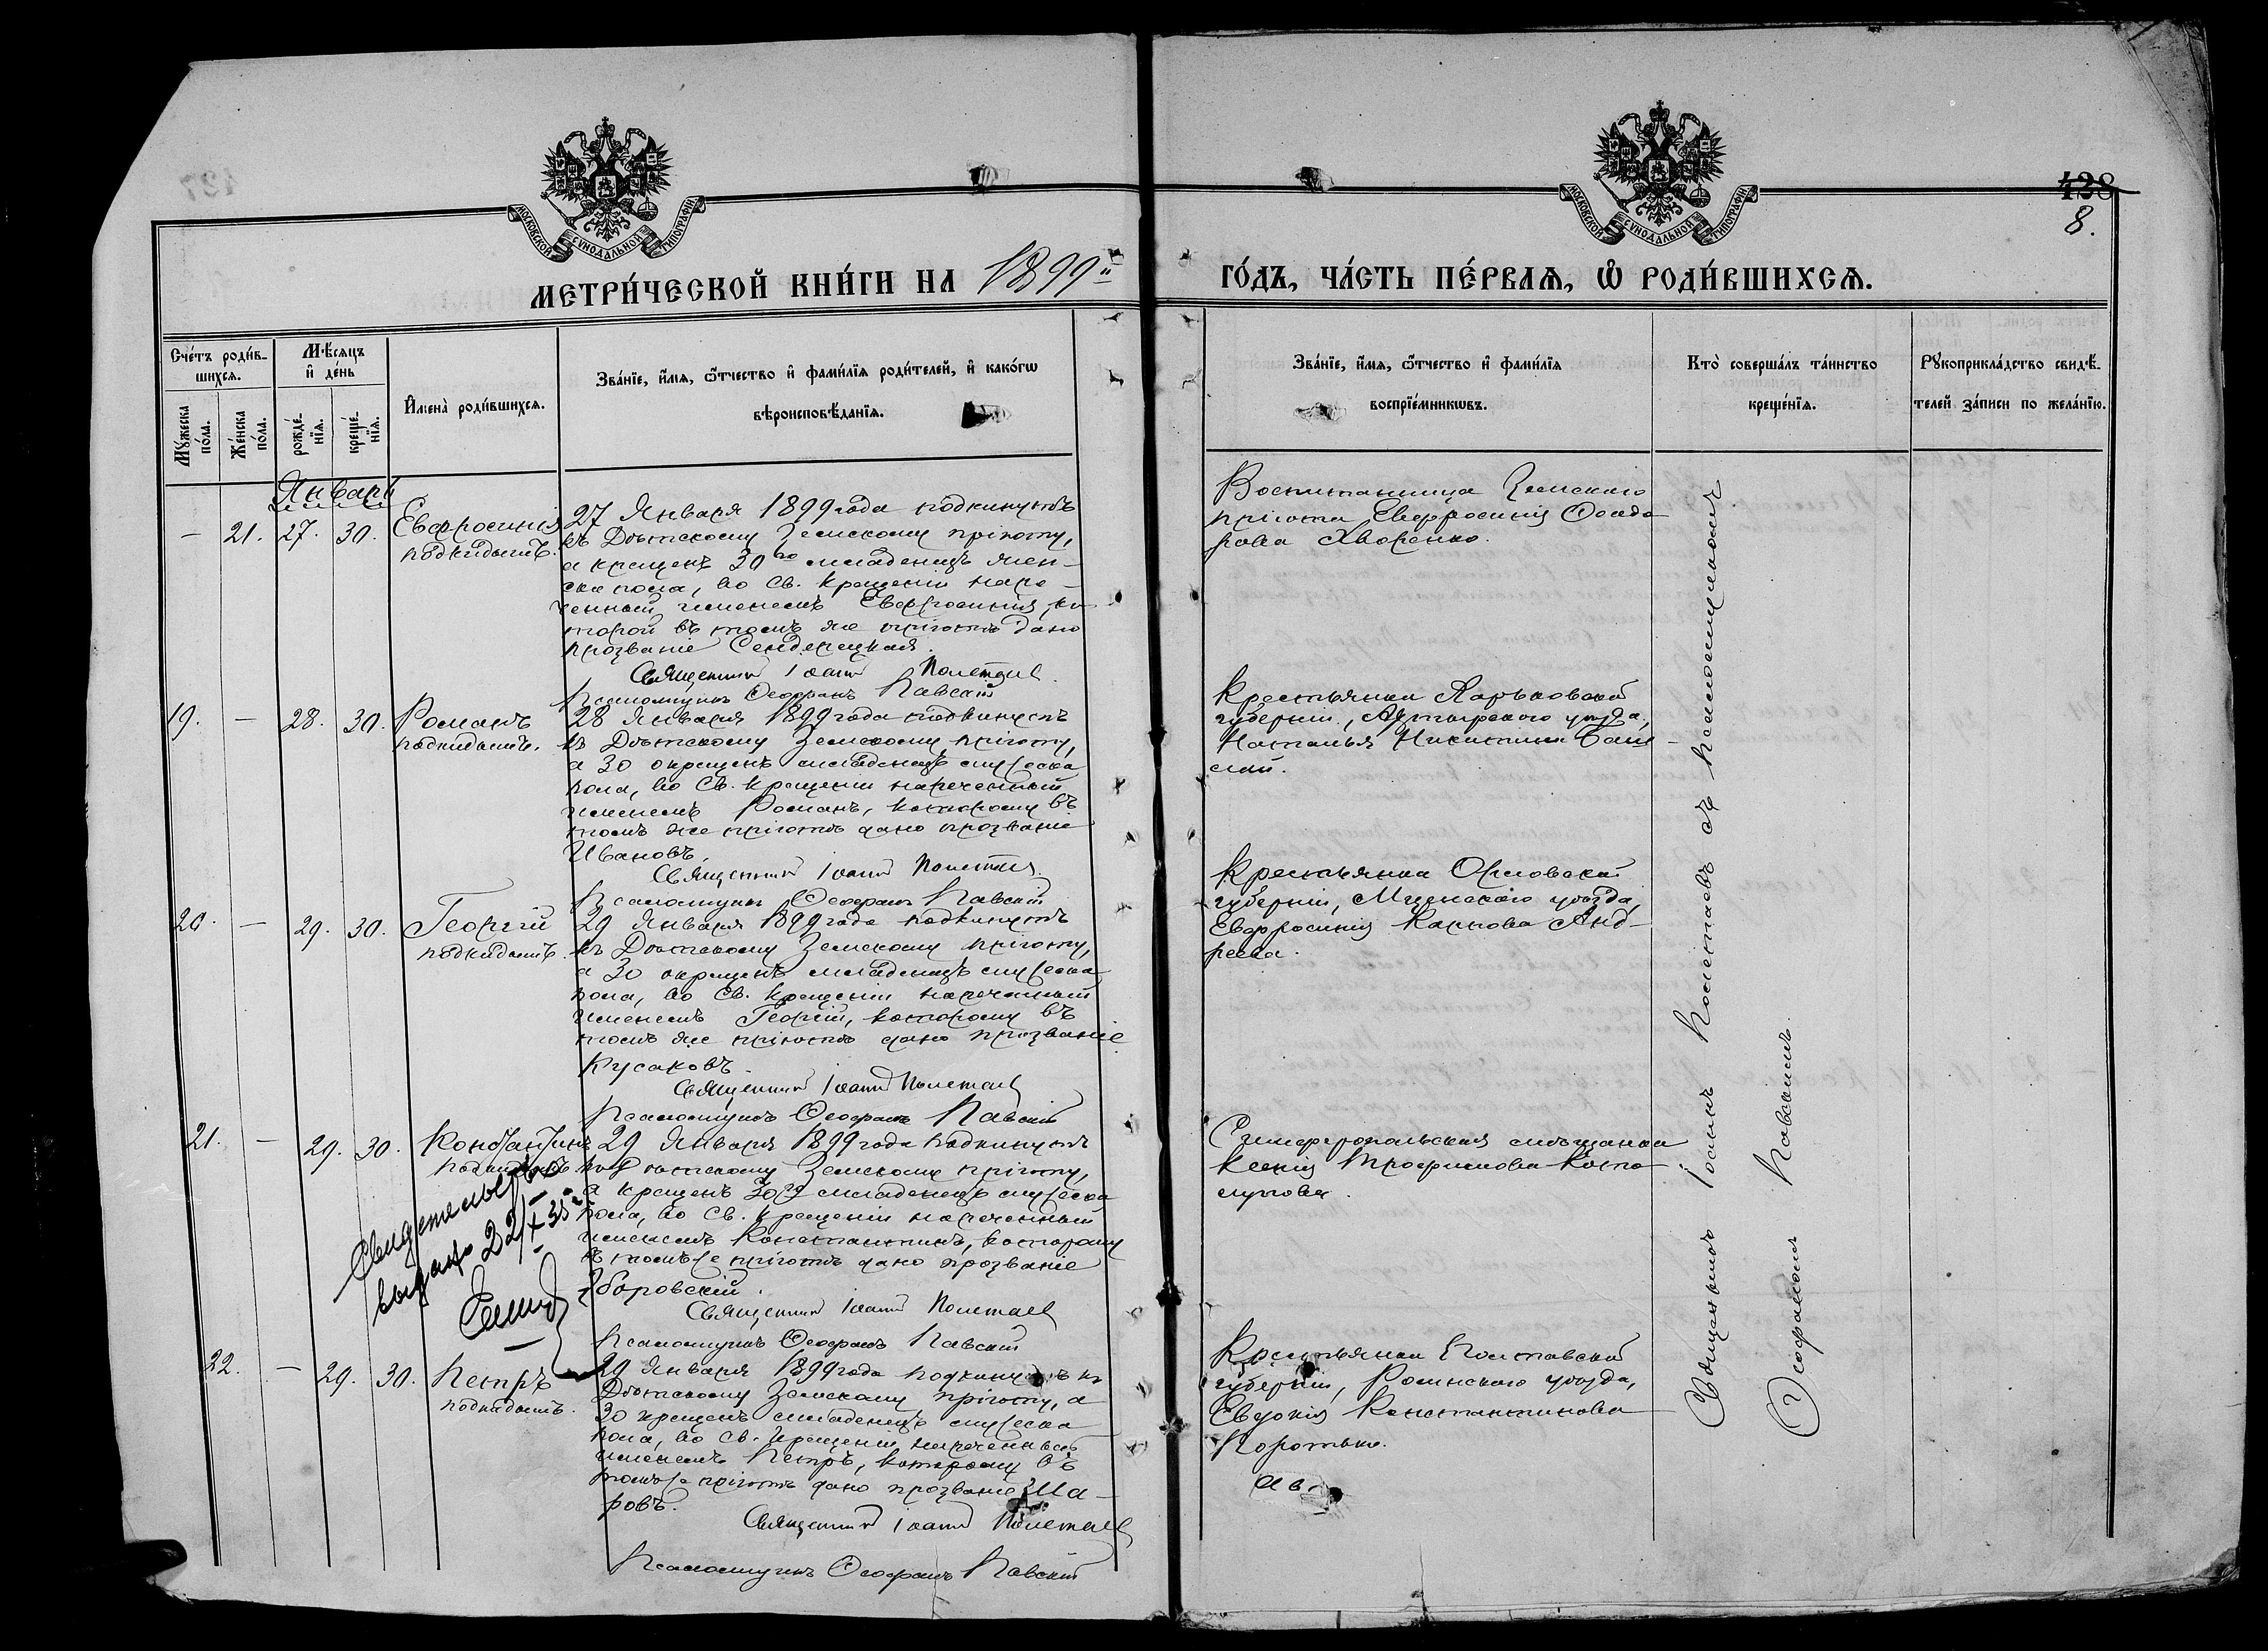 438
8.
МОСКОВСКОЙ СѴНОДАЛЬНОЙ ТИПОГРАФІИ
МОСКОВСКОЙ СѴНОДАЛЬНОЙ ТИПОГРАФІИ
МЕТРИ́ЧЕСКОЙ КНИ́ГИ НА 1899й
ГО́ДЪ, ЧА́СТЬ ПЕ́РВАѦ, Ѽ РОДИ́ВШИХСѦ.
Сче́тъ роди́в-
шихсѧ.
Мꙋ́жеска
по́ла.
Же́нска
по́ла.
Мѣ́сѧцъ
и҆ де́нь
рожде́-
нїѧ.
креще́-
нїѧ.
И҆мена̀ роди́вшихсѧ.
Зва́нїе, и҆́мѧ, ѻ҆́тчество и҆ фамѝлїѧ роди́телей, и҆ како́гѡ
вѣроисповѣ́данїѧ.
Зва́нїе, и҆́мѧ, ѻ҆́тчество и҆ фамѝлїѧ
воспрїе́мникѡвъ.
Кто̀ соверша́лъ та́инство
креще́нїѧ.
Рꙋкоприкла́дство свидѣ́-
телей за́писи по жела́нїю.
Январь
— 21. 27. 30. Евфросинія
подкидышъ.
27 Января 1899 года подкинутъ
къ Дѣтскому Земскому пріюту,
а крещенъ 30го младенецъ жен-
ска пола, во Св. Крещеніи наре-
ченный именемъ Евфросинія, ко-
торой въ томъ же пріютѣ дано
прозваніе
Священник Іоанн Полетаев.
Псаломщикъ Ѳеофанъ Павскій
Воспитанница Земскаго
пріюта Евфросинія Ѳеодо-
рова
19. — 28. 30. Романъ
подкидышъ.
28 Января 1899 года подкинутъ
къ Дѣтскому Земскому пріюту,
а 30 окрещенъ младенецъ мужеска
пола, во Св. Крещеніи нареченный
именемъ Романъ, которому въ
томъ же пріютѣ дано прозваніе
Ивановъ.
Священник Іоанн Полетаев.
Псаломщикъ Ѳеофанъ Павскій
Крестьянка Харьковской
губерніи, Ахтырскаго уѣзда,
Наталья Никитина
20. — 29. 30. Георгій
подкидышъ.
29 Января 1899 года подкинутъ
къ Дѣтскому Земскому пріюту,
а 30 окрещенъ младенецъ мужеска
пола, во Св. Крещеніи нареченный
именемъ Георгій, которому въ
томъ же пріютѣ дано прозваніе
Кусаковъ.
Священник Іоанн Полетаев
Псаломщикъ Ѳеофанъ Павскій
Крестьянка Орловской
губерніи, Мценскаго уѣзда,
Евфросинія Карпова Анд-
реева.
21. — 29. 30. Константинъ
подкидышъ
29 Января 1899 года подкинутъ
къ Дѣтскому Земскому пріюту,
а крещенъ 30го младенецъ мужеска
пола, во Св. Крещеніи нареченный
именемъ Константинъ, которому
въ томъ же пріютѣ дано прозваніе
Зборовскій.
Священник Іоанн Полетаев
Псаломщикъ Ѳеофанъ Павскій
Свидетельство
выдано 22/X 35 г.
Симферопольская мѣщанка
Ксенія Трофимова
22. — 29. 30. Петръ
подкидышъ.
29 Января 1899 года подкинутъ къ
Дѣтскому Земскому пріюту, а
30 крещенъ младенецъ мужеска
пола, во Св. Крещеніи нареченный
именемъ Петръ, которому въ
томъ же пріютѣ дано прозваніе Ша-
ровъ.
Священник Іоанн Полетаев
Псаломщикъ Ѳеофанъ Павскій
Крестьянка Полтавской
губерніи, Роменскаго уѣзда,
Евдокія Константинова
Священникъ Іоаннъ Полетаевъ съ псаломщикомъ
Ѳеофаномъ Павскимъ.